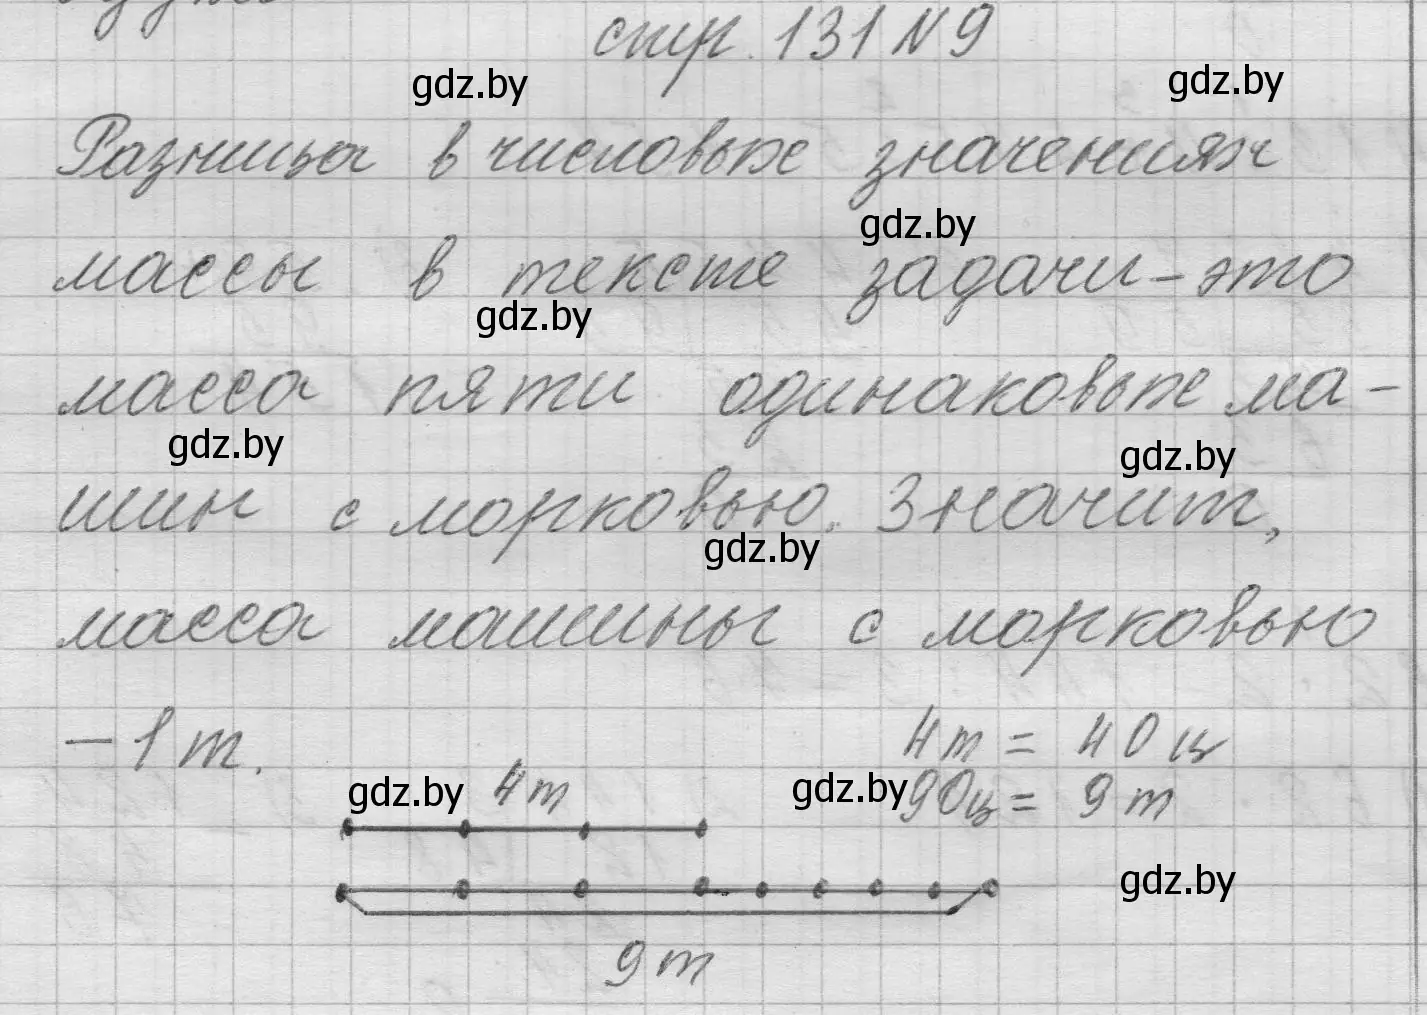 стр. 131 № 9
gdz.by gdz.by
Разница в числовых значениях
gdz.by
массы в тексте задачи - это
gdz.by
масса пяти одинаковых ма-
gdz.by gdz.by
шин с морковью. Значит,
gdz.by
масса машины с морковью
- 1 т. 4 т = 40 ц
gdz.by 4 т gdz.by 90 ц = 9 т
gdz.by
9 т